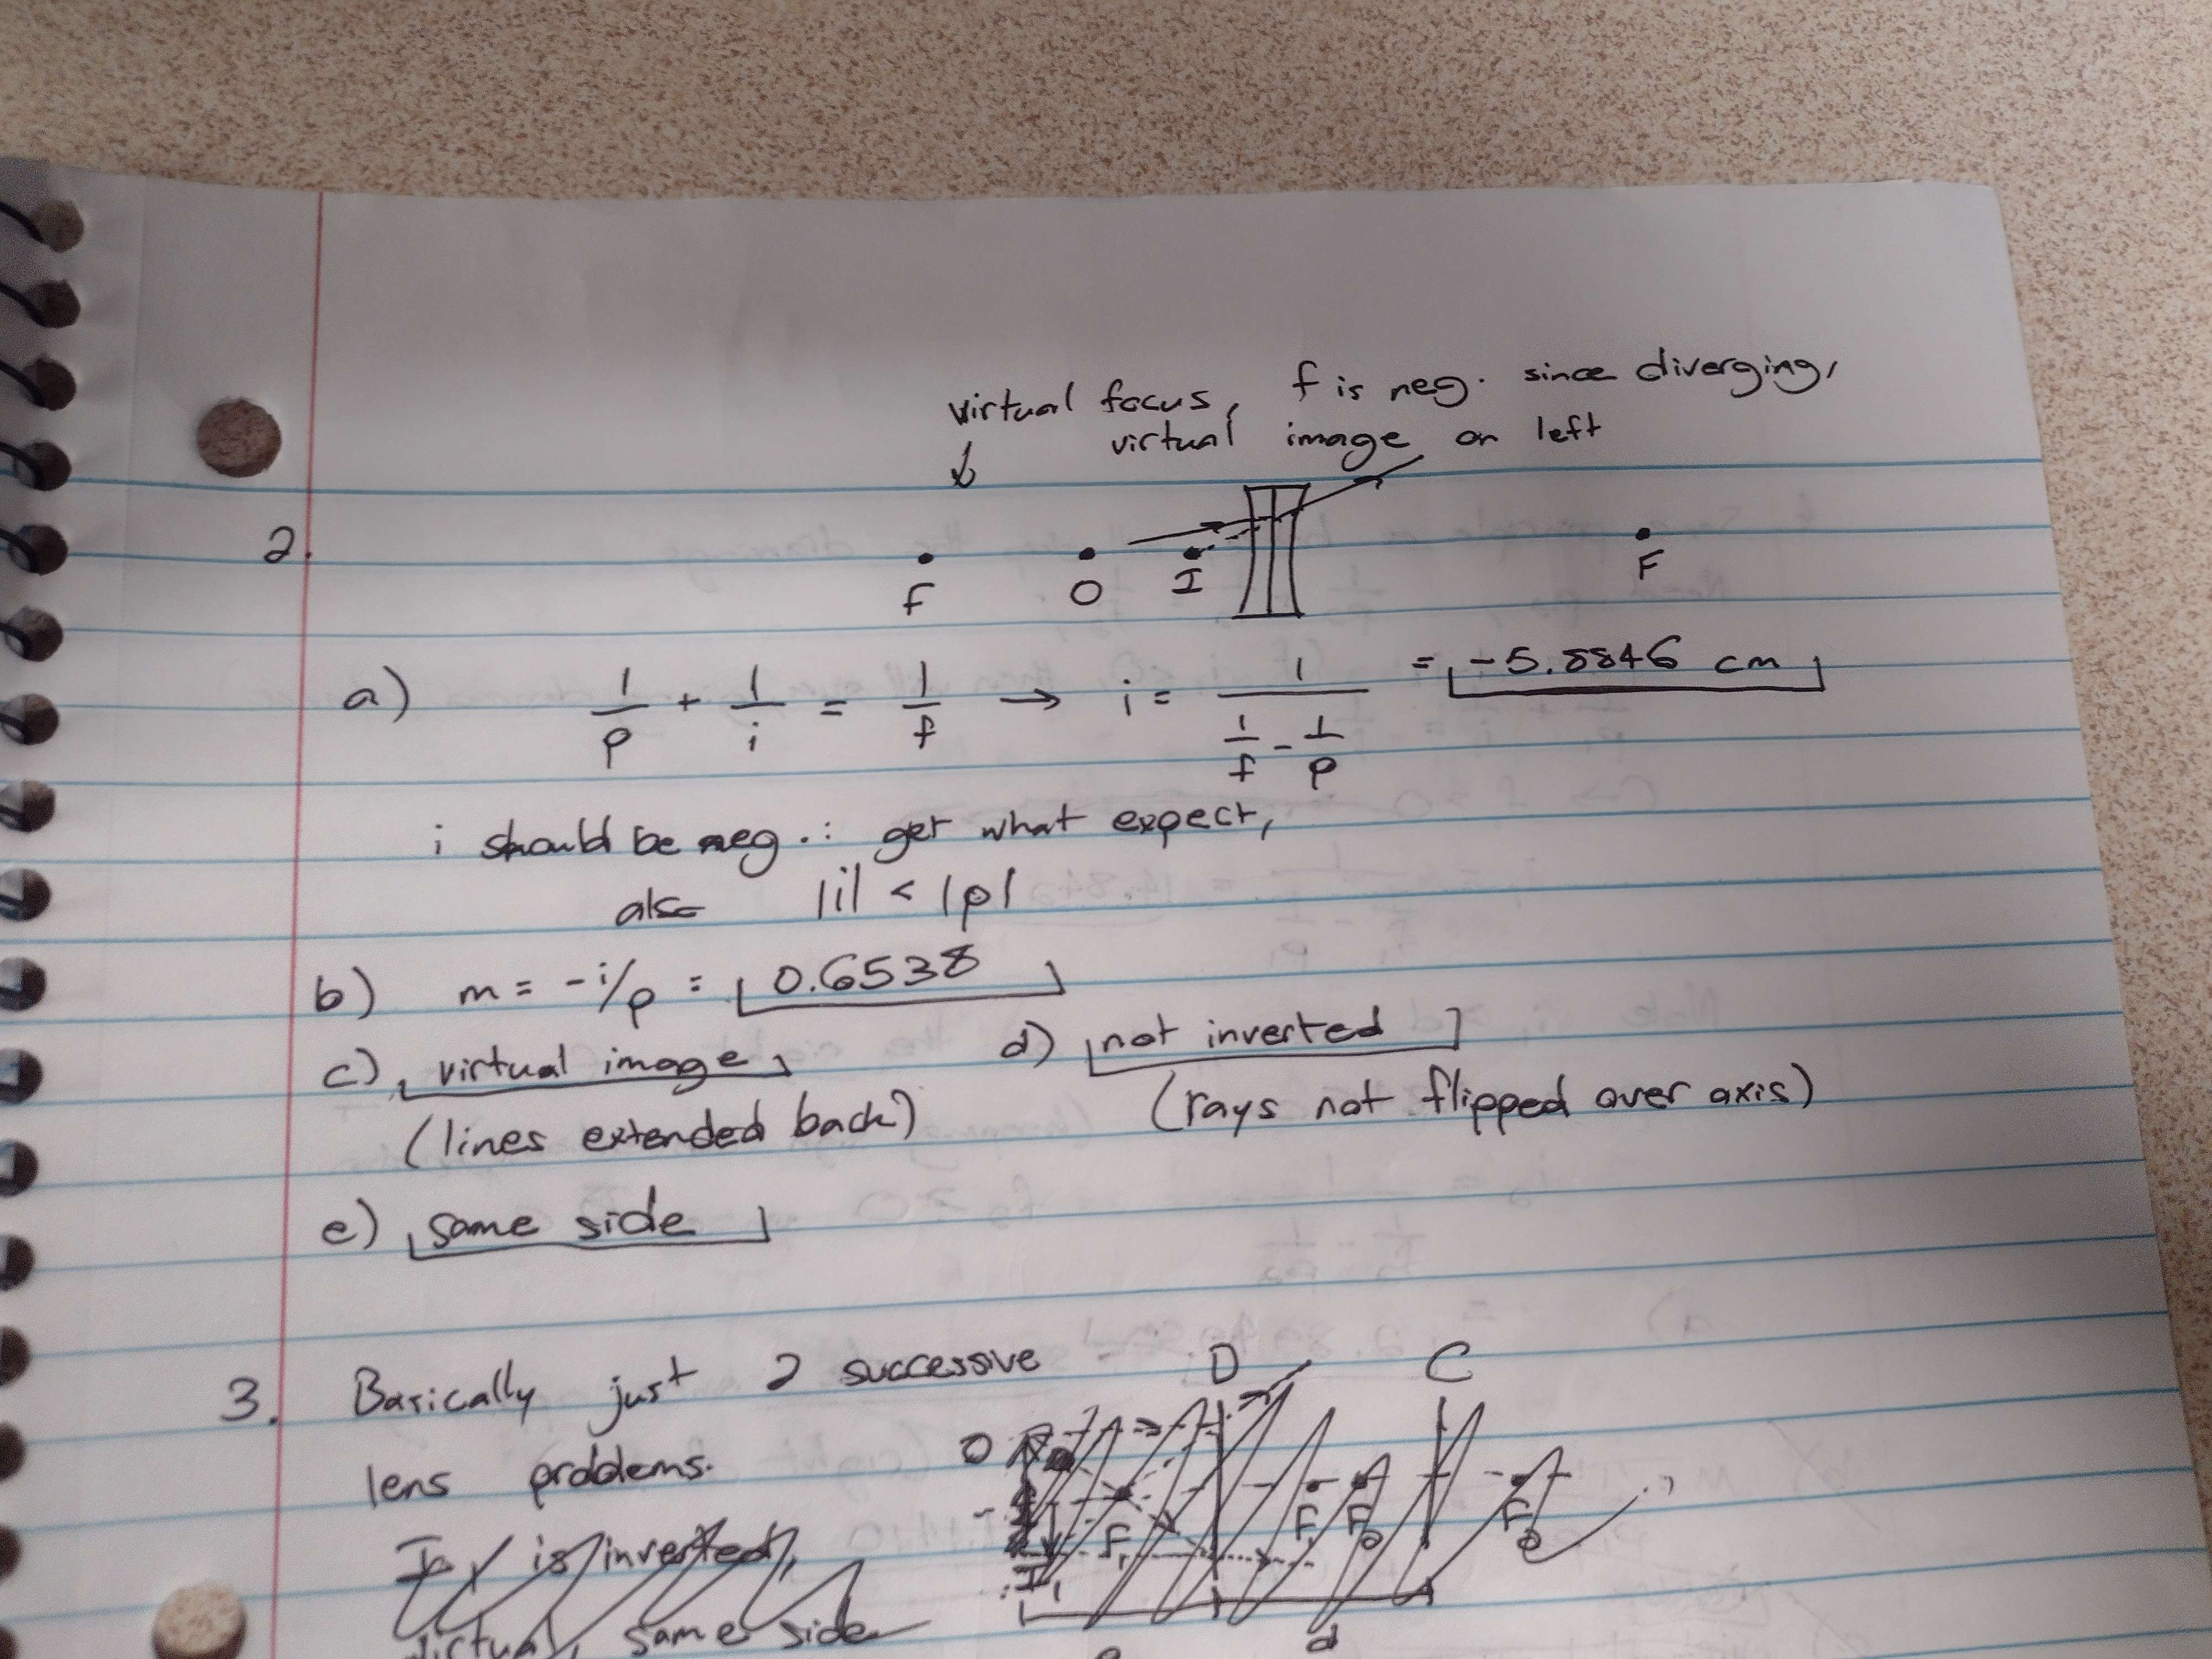 virtual focus, f is neg. since diverging,
↓ virtual image on left
2.
F O I F
a) 1/p + 1/i = 1/f → i = 1/(1/f - 1/p) = -5.8846 cm
i should be neg ∴ get what expect,
also |i| < |p|
b) m = -i/p = 0.6538
c) virtual image d) not inverted
(lines extended back) (rays not flipped over axis)
e) same side
3. Basically just 2 successive D C
lens problems. O
F₁ F₁ F₂ F₂
I₁ is inverted,
I₁
virtual, same side d